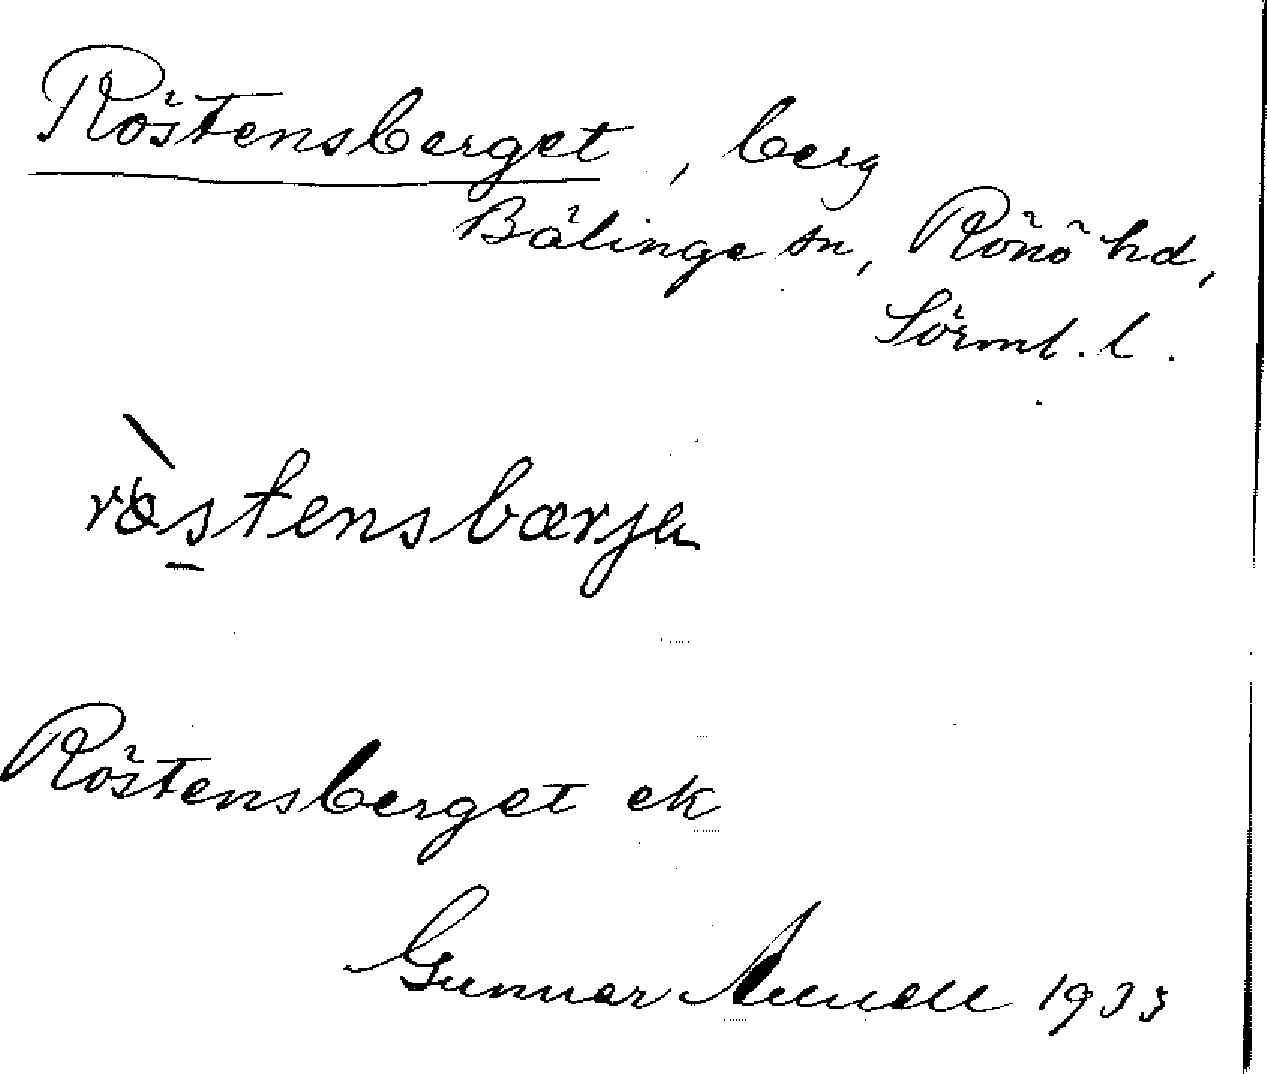 Röstensberget, berg
Bälinge sn, Rönö hd,
Sörml. l.
rös̱tensbærja
Röstensberget ek
Gunnar 1933